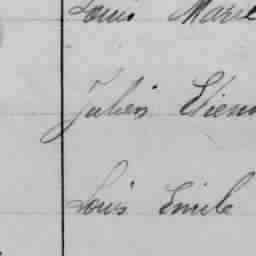 Louis Marie
Julien Etienn
Louis Emile